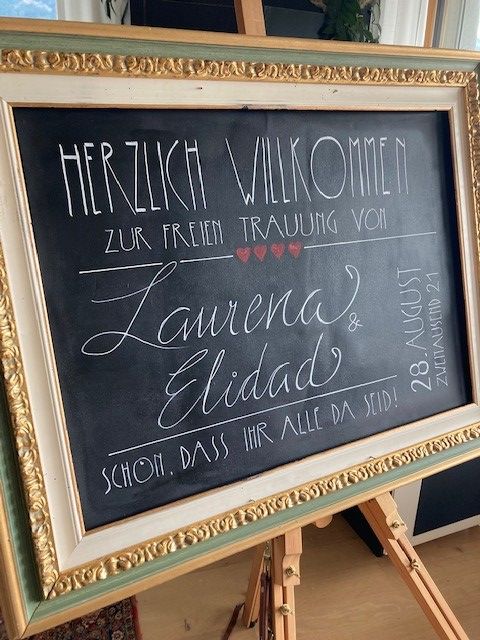 HERZLICH WILLKOMMEN
ZUR FREIEN TRAUUNG VON
Laurena &
Elidad
28. AUGUST
ZWEITAUSEND 21
SCHÖN, DASS IHR ALLE DA SEID!